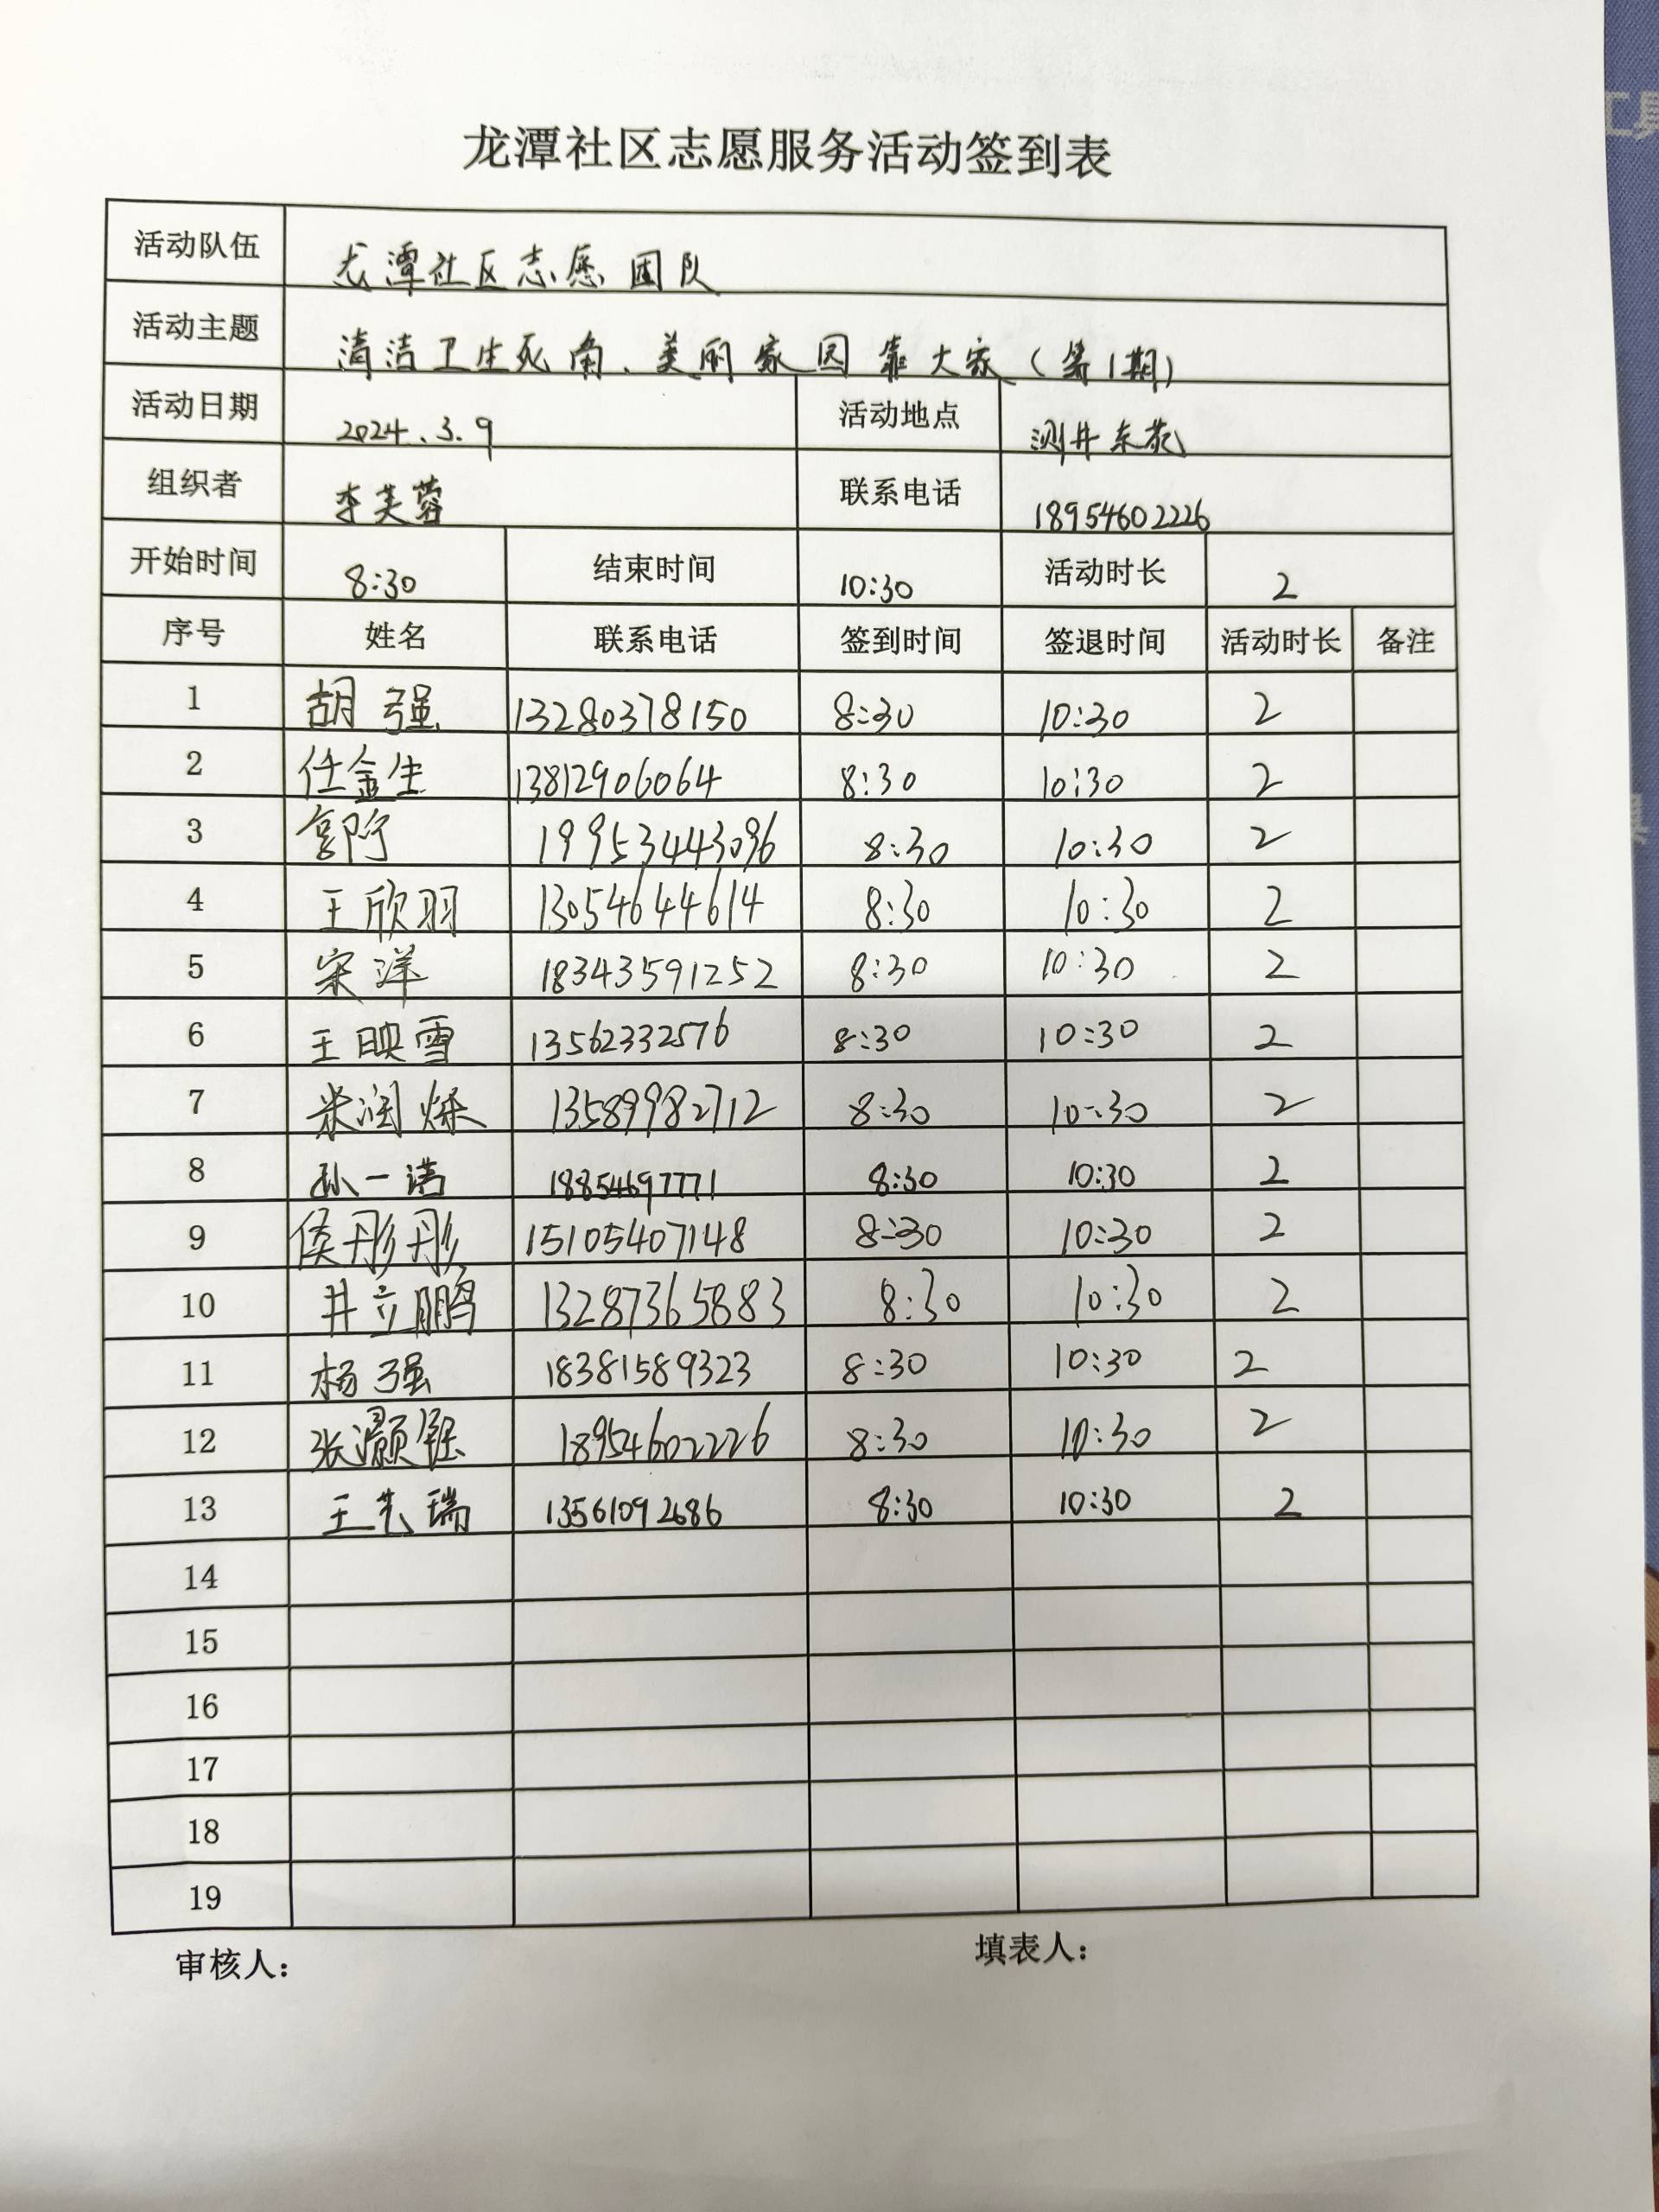 龙潭社区志愿服务活动签到表
活动队伍 龙潭社区志愿团队
活动主题 清洁卫生死角、美丽家园靠大家(第1期)
活动日期 2024.3.9 活动地点 测井东苑
组织者 李芙蓉 联系电话 18954602226
开始时间 8:30 结束时间 10:30 活动时长 2
序号 姓名 联系电话 签到时间 签退时间 活动时长 备注
1 胡强 13280378150 8:30 10:30 2
2 任金生 13812906064 8:30 10:30 2
3 19953443096 8:30 10:30 2
4 王欣羽 13054644614 8:30 10:30 2
5 宋洋 18343591252 8:30 10:30 2
6 王映雪 13562332576 8:30 10:30 2
7 米润烁 13589982712 8:30 10:30 2
8 孙一诺 18854697771 8:30 10:30 2
9 侯彤彤 15105407148 8:30 10:30 2
10 井立鹏 13287365883 8:30 10:30 2
11 杨强 18381589323 8:30 10:30 2
12 张灏钰 18954602226 8:30 10:30 2
13 王艺瑞 13561092686 8:30 10:30 2
14
15
16
17
18
19
审核人: 填表人:
工具